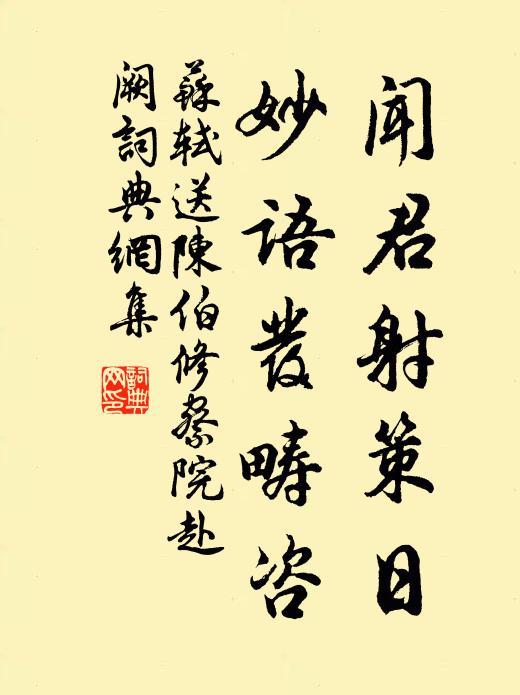 闻君射策日
妙语發畴咨
蘇軾送陳伯修察院赴
阙詞典網集
詞典网印